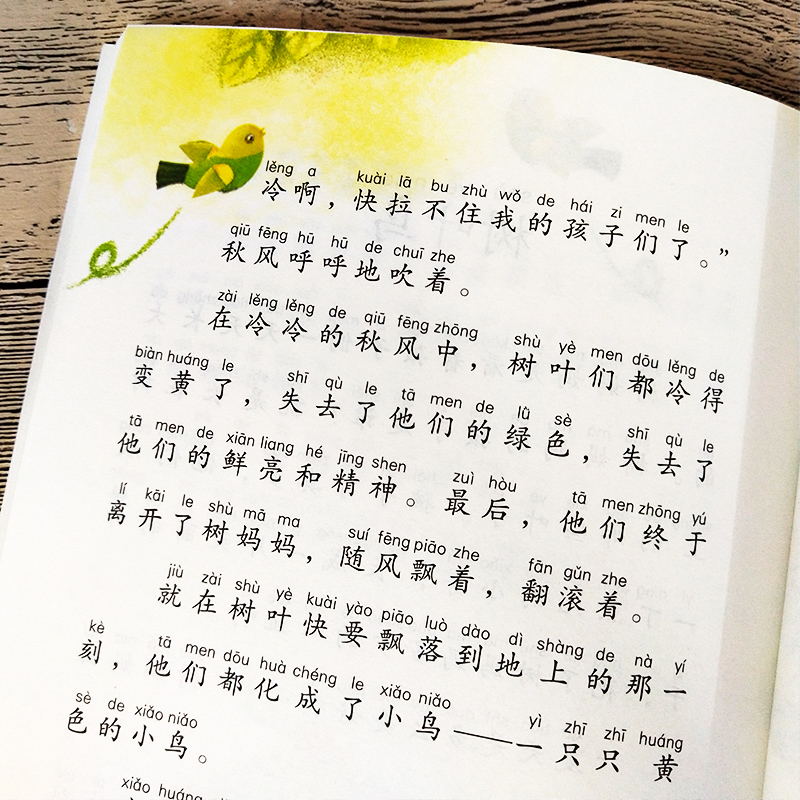 lěng a kuài lā bu zhù wǒ de hái zi men le
冷啊，快拉不住我的孩子们了。”
qiū fēng hū hū de chuī zhe
秋风呼呼地吹着。
zài lěng lěng de qiū fēng zhōng shù yè men dōu lěng de
在冷冷的秋风中，树叶们都冷得
biàn huáng le shī qù le tā men de lǜ sè shī qù le
变黄了，失去了他们的绿色，失去了
tā men de xiān liang hé jīng shen zuì hòu tā men zhōng yú
他们的鲜亮和精神。最后，他们终于
lí kāi le shù mā ma suí fēng piāo zhe fān gǔn zhe
离开了树妈妈，随风飘着，翻滚着。
jiù zài shù yè kuài yào piāo luò dào dì shàng de nà yí
就在树叶快要飘落到地上的那一
kè tā men dōu huà chéng le xiǎo niǎo yì zhī zhī huáng
刻，他们都化成了小鸟——一只只黄
sè de xiǎo niǎo
色的小鸟。
xiǎo huáng